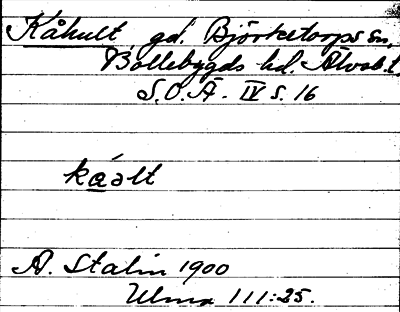 Kåhult gd. Björketorps sn,
Bollebygds hd. Älvsb. l.
S.O.Ä. IV s. 16
ká̱əlt
A. Stalin 1900
Ulma 111:25.